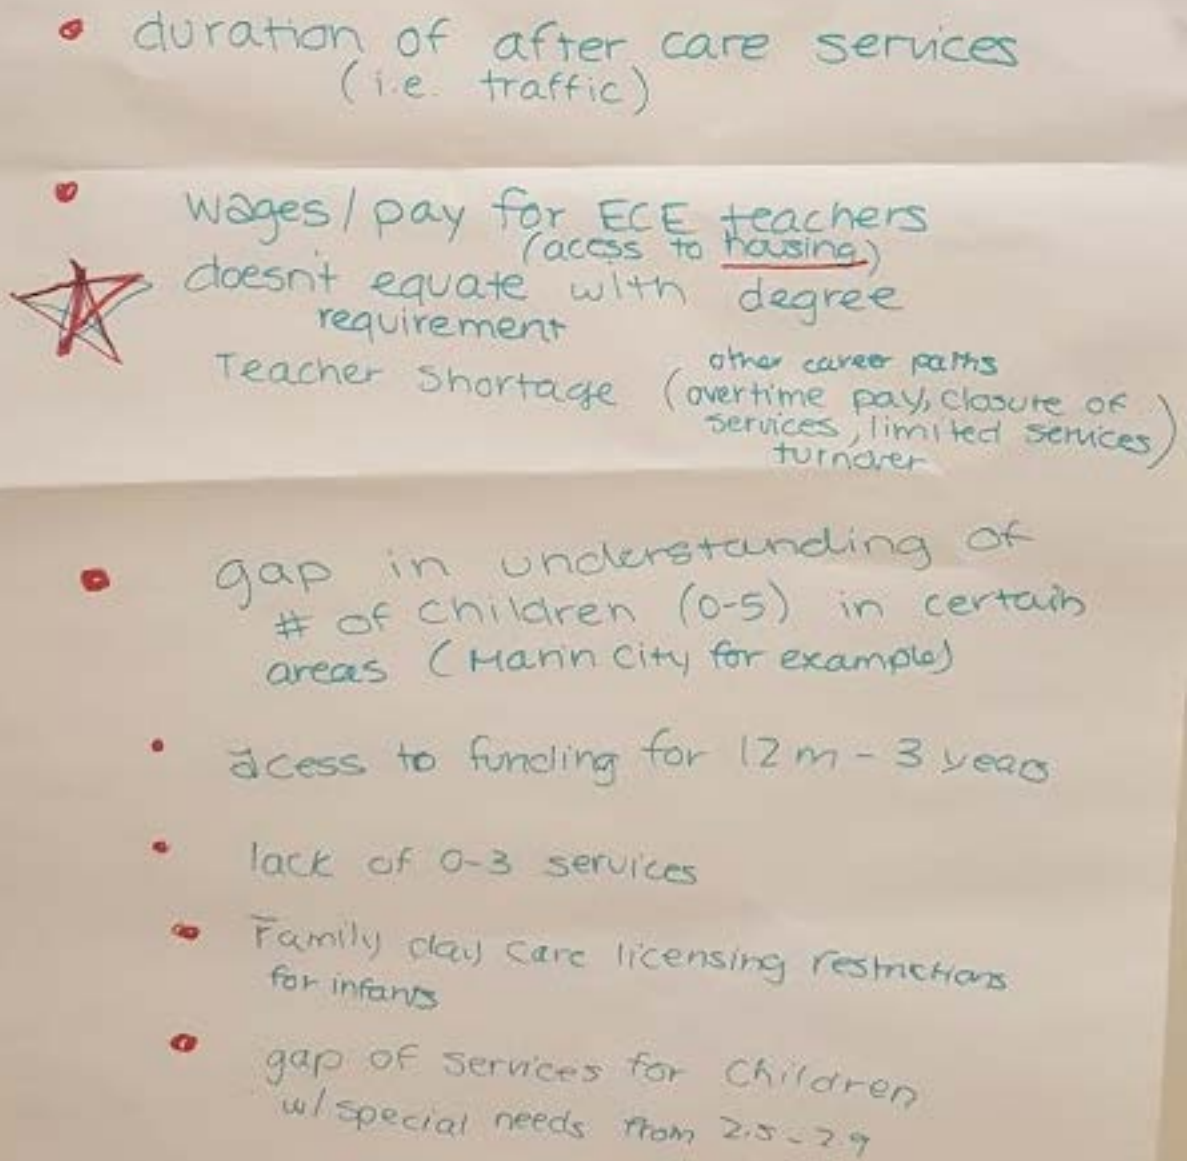 duration of after care services
(i.e. traffic)
wages/pay for ECE teachers
(acess to housing)
doesn't equate with degree
requirement
Teacher Shortage
other career paths
(overtime pay, closure of
services, limited services)
turnover
gap in understanding of
# of children (0-5) in certain
areas (Marin City for example)
acess to funding for 12m - 3 years
lack of 0-3 services
Family day care licensing restrictions
for infants
gap of services for children
w/ special needs from 2.5-2.9